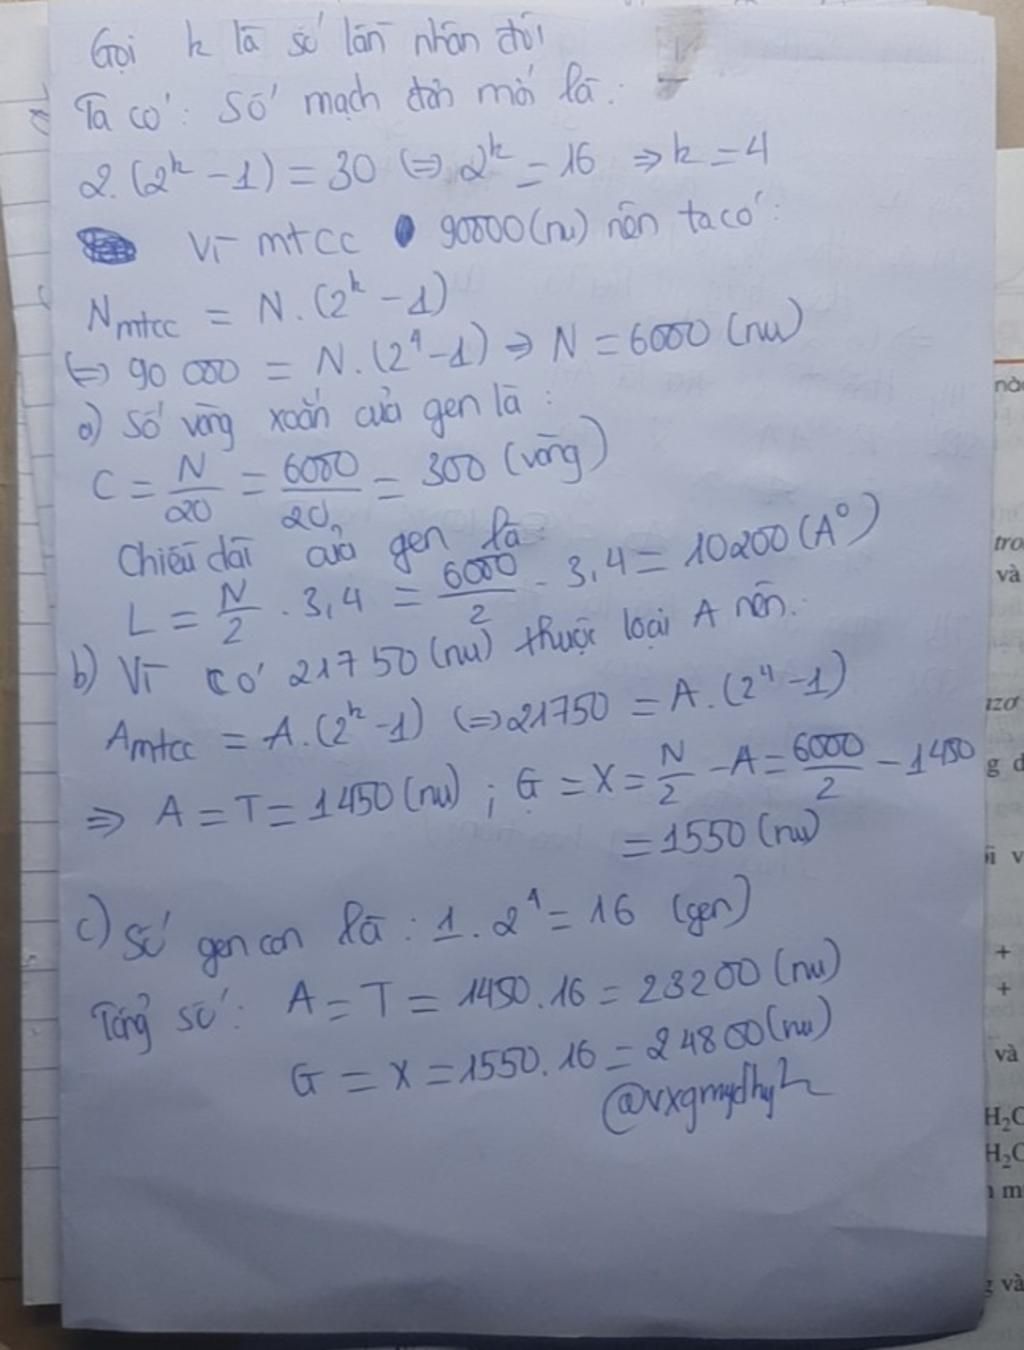 Gọi k là số lần nhân đôi
Ta có: Số mạch đơn mới là:
2.(2^k - 1) = 30 (=) 2^k = 16 => k = 4
Vì mtcc 90000(nu) nên ta có:
N mtcc = N.(2^k - 1)
(=) 90 000 = N.(2^4 - 1) => N = 6000 (nu)
a) Số vòng xoắn của gen là:
C = N/20 = 6000/20 = 300 (vòng)
Chiều dài của gen là
L = N/2 . 3,4 = 6000/2 . 3,4 = 10200(A°)
b) Vì có 21750(nu) thuộc loại A nên:
A mtcc = A.(2^k - 1) (=) 21750 = A.(2^4 - 1)
=> A = T = 1450(nu) ; G = X = N/2 - A = 6000/2 - 1450
= 1550 (nu)
c) Số gen con là: 1.2^4 = 16 (gen)
Tổng số: A = T = 1450.16 = 23200(nu)
G = X = 1550.16 = 24800(nu)
nà
tro
và
g d
+
+
và
H₂O
H₂O
và